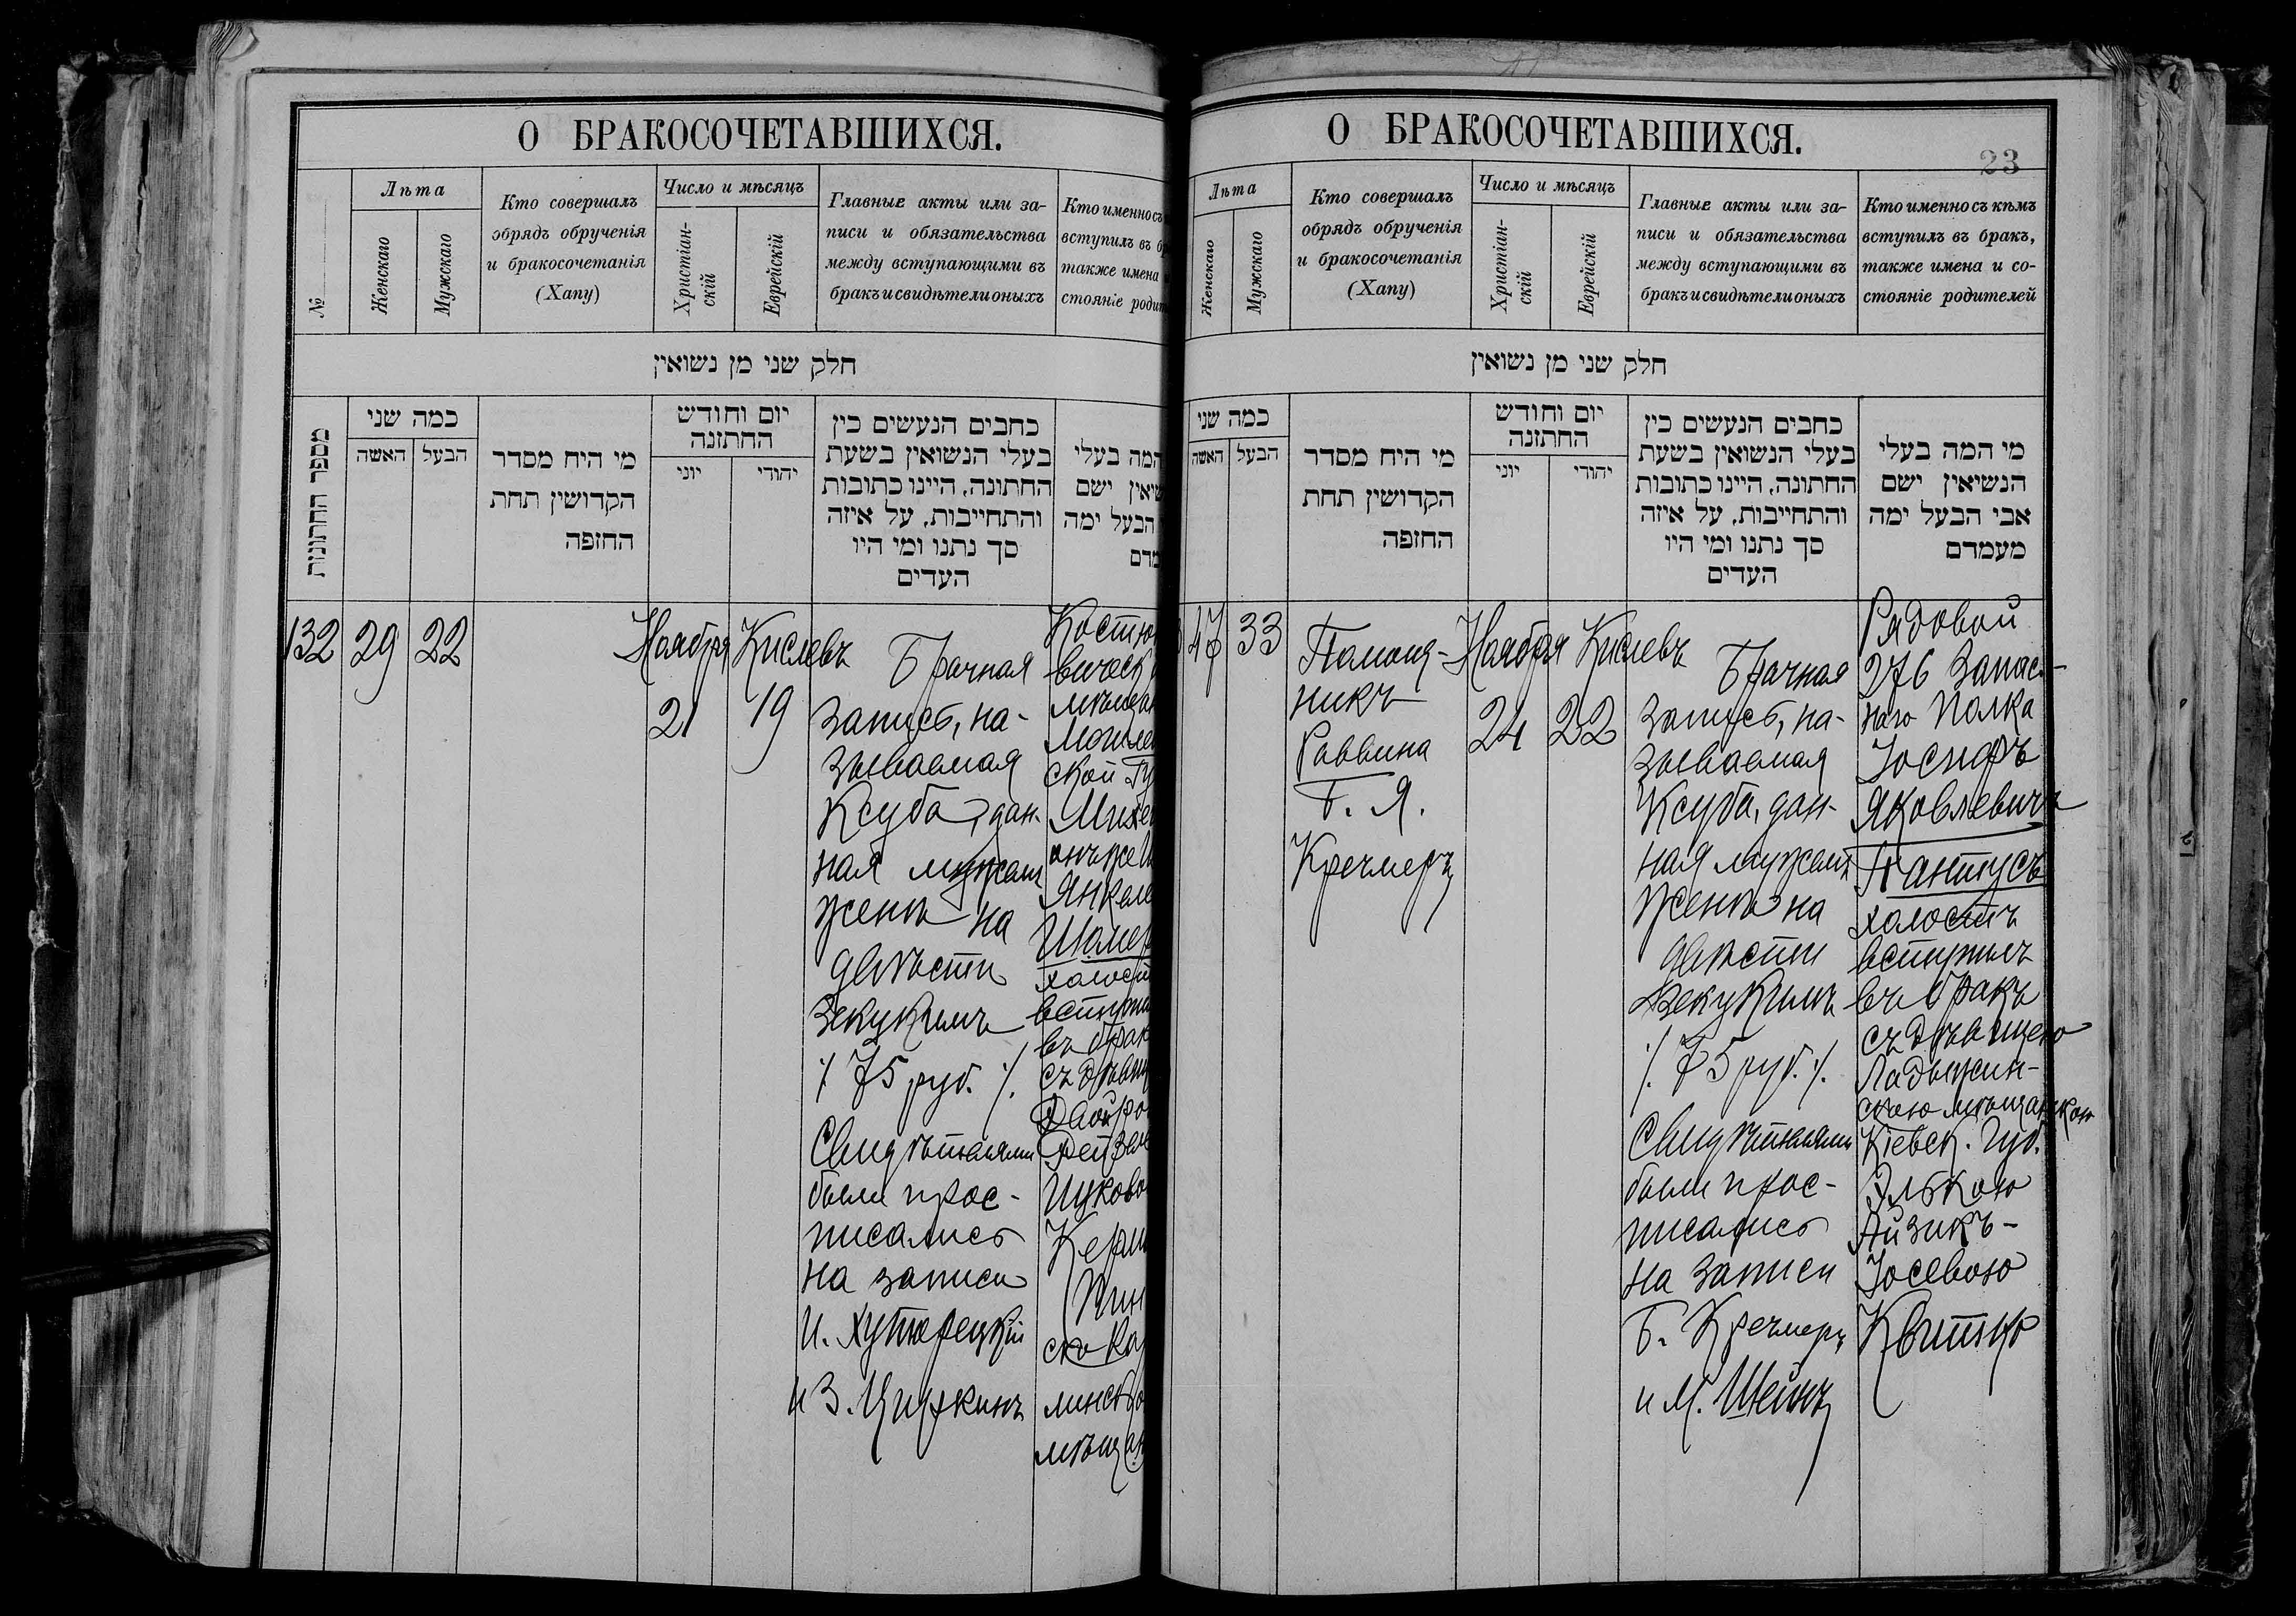 О БРАКОСОЧЕТАВШИХСЯ.
№
Лѣта
Женскаго
Мужскаго
Кто совершалъ
обрядъ обрученія
и бракосочетанія
(Хапу)
Число и мѣсяцъ
Христіан-
скій
Еврейскій
Главные акты или за-
писи и обязательства
между вступающими въ
бракъ и свидѣтели оныхъ
Кто именно съ
вступилъ въ б
также имена
стояніе роди
חלק שני מן נשואין
מספר החתונות
כמה שני
האשה
הבעל
מי היח מסדר
הקדושין תחת
החופה
יום וחודש
החתונה
יוני
יהודי
כחבים הנעשים כין
בעלי הנשואין בשעת
החתונה, היינו כתובות
והתחייבות, על איזה
סך נתנו ומי היו
העדים
המה בעלי
שיאין ישם
הבעל ימה
מדם
132
29
22
Ноября
21
Кислевъ
19
Брачная
запись, на-
зываемая
Ксуба, дан-
ная мужемъ
женѣ на
двѣсти
зекукимъ
./. 75 руб. ./.
Свидѣтелями
были и рос-
писались
на записи
И. Хуторецкій
и З. Циркинъ
Костю
вическ
мѣщан
Могиле
ской Гу
Михе
онъ же
Янкеле
Шомер
холост
вступи
въ брак
съ дѣви
Рейзе
Ицково
скока
минско
мѣщан
О БРАКОСОЧЕТАВШИХСЯ.
23
Лѣта
Женскаго
Мужскаго
Кто совершалъ
обрядъ обрученія
и бракосочетанія
(Хапу)
Число и мѣсяцъ
Христіан-
скій
Еврейскій
Главные акты или за-
писи и обязательства
между вступающими въ
бракъ и свидѣтели оныхъ
Кто именно съ кѣмъ
вступилъ въ бракъ,
также имена и со-
стояніе родителей
חלק שני מן נשואין
כמה שני
האשה
הבעל
מי היח מסדר
הקדושין תחת
החופה
יום וחודש
החתונה
יוני
יהודי
כחבים הנעשים כין
בעלי הנשואין בשעת
החתונה, היינו כתובות
והתחייבות, על איזה
סך נתנו ומי היו
העדים
מי המה בעלי
הנשיאין ישם
אבי הבעל ימה
מעמדם
47
33
Помощ-
никъ
Раввина
Б. Я.
Кречмеръ
Ноября
24
Кислевъ
22
Брачная
запись, на-
зываемая
Ксуба, дан-
ная мужемъ
женѣ на
двѣсти
зекукимъ
./. 75 руб. ./.
Свидѣтелями
были и рос-
писались
на записи
Б. Кречмеръ
и М. Шейнъ
Рядовой
276 Запас-
наго Полка
Іосифъ
Яковлевичъ
Пантусъ
холостъ
вступилъ
въ бракъ
съ дѣвицею
Ладыжин-
скою мѣщанкою
Кіевск. Губ.
Элькою
Айзикъ-
Іосевою
Квитко